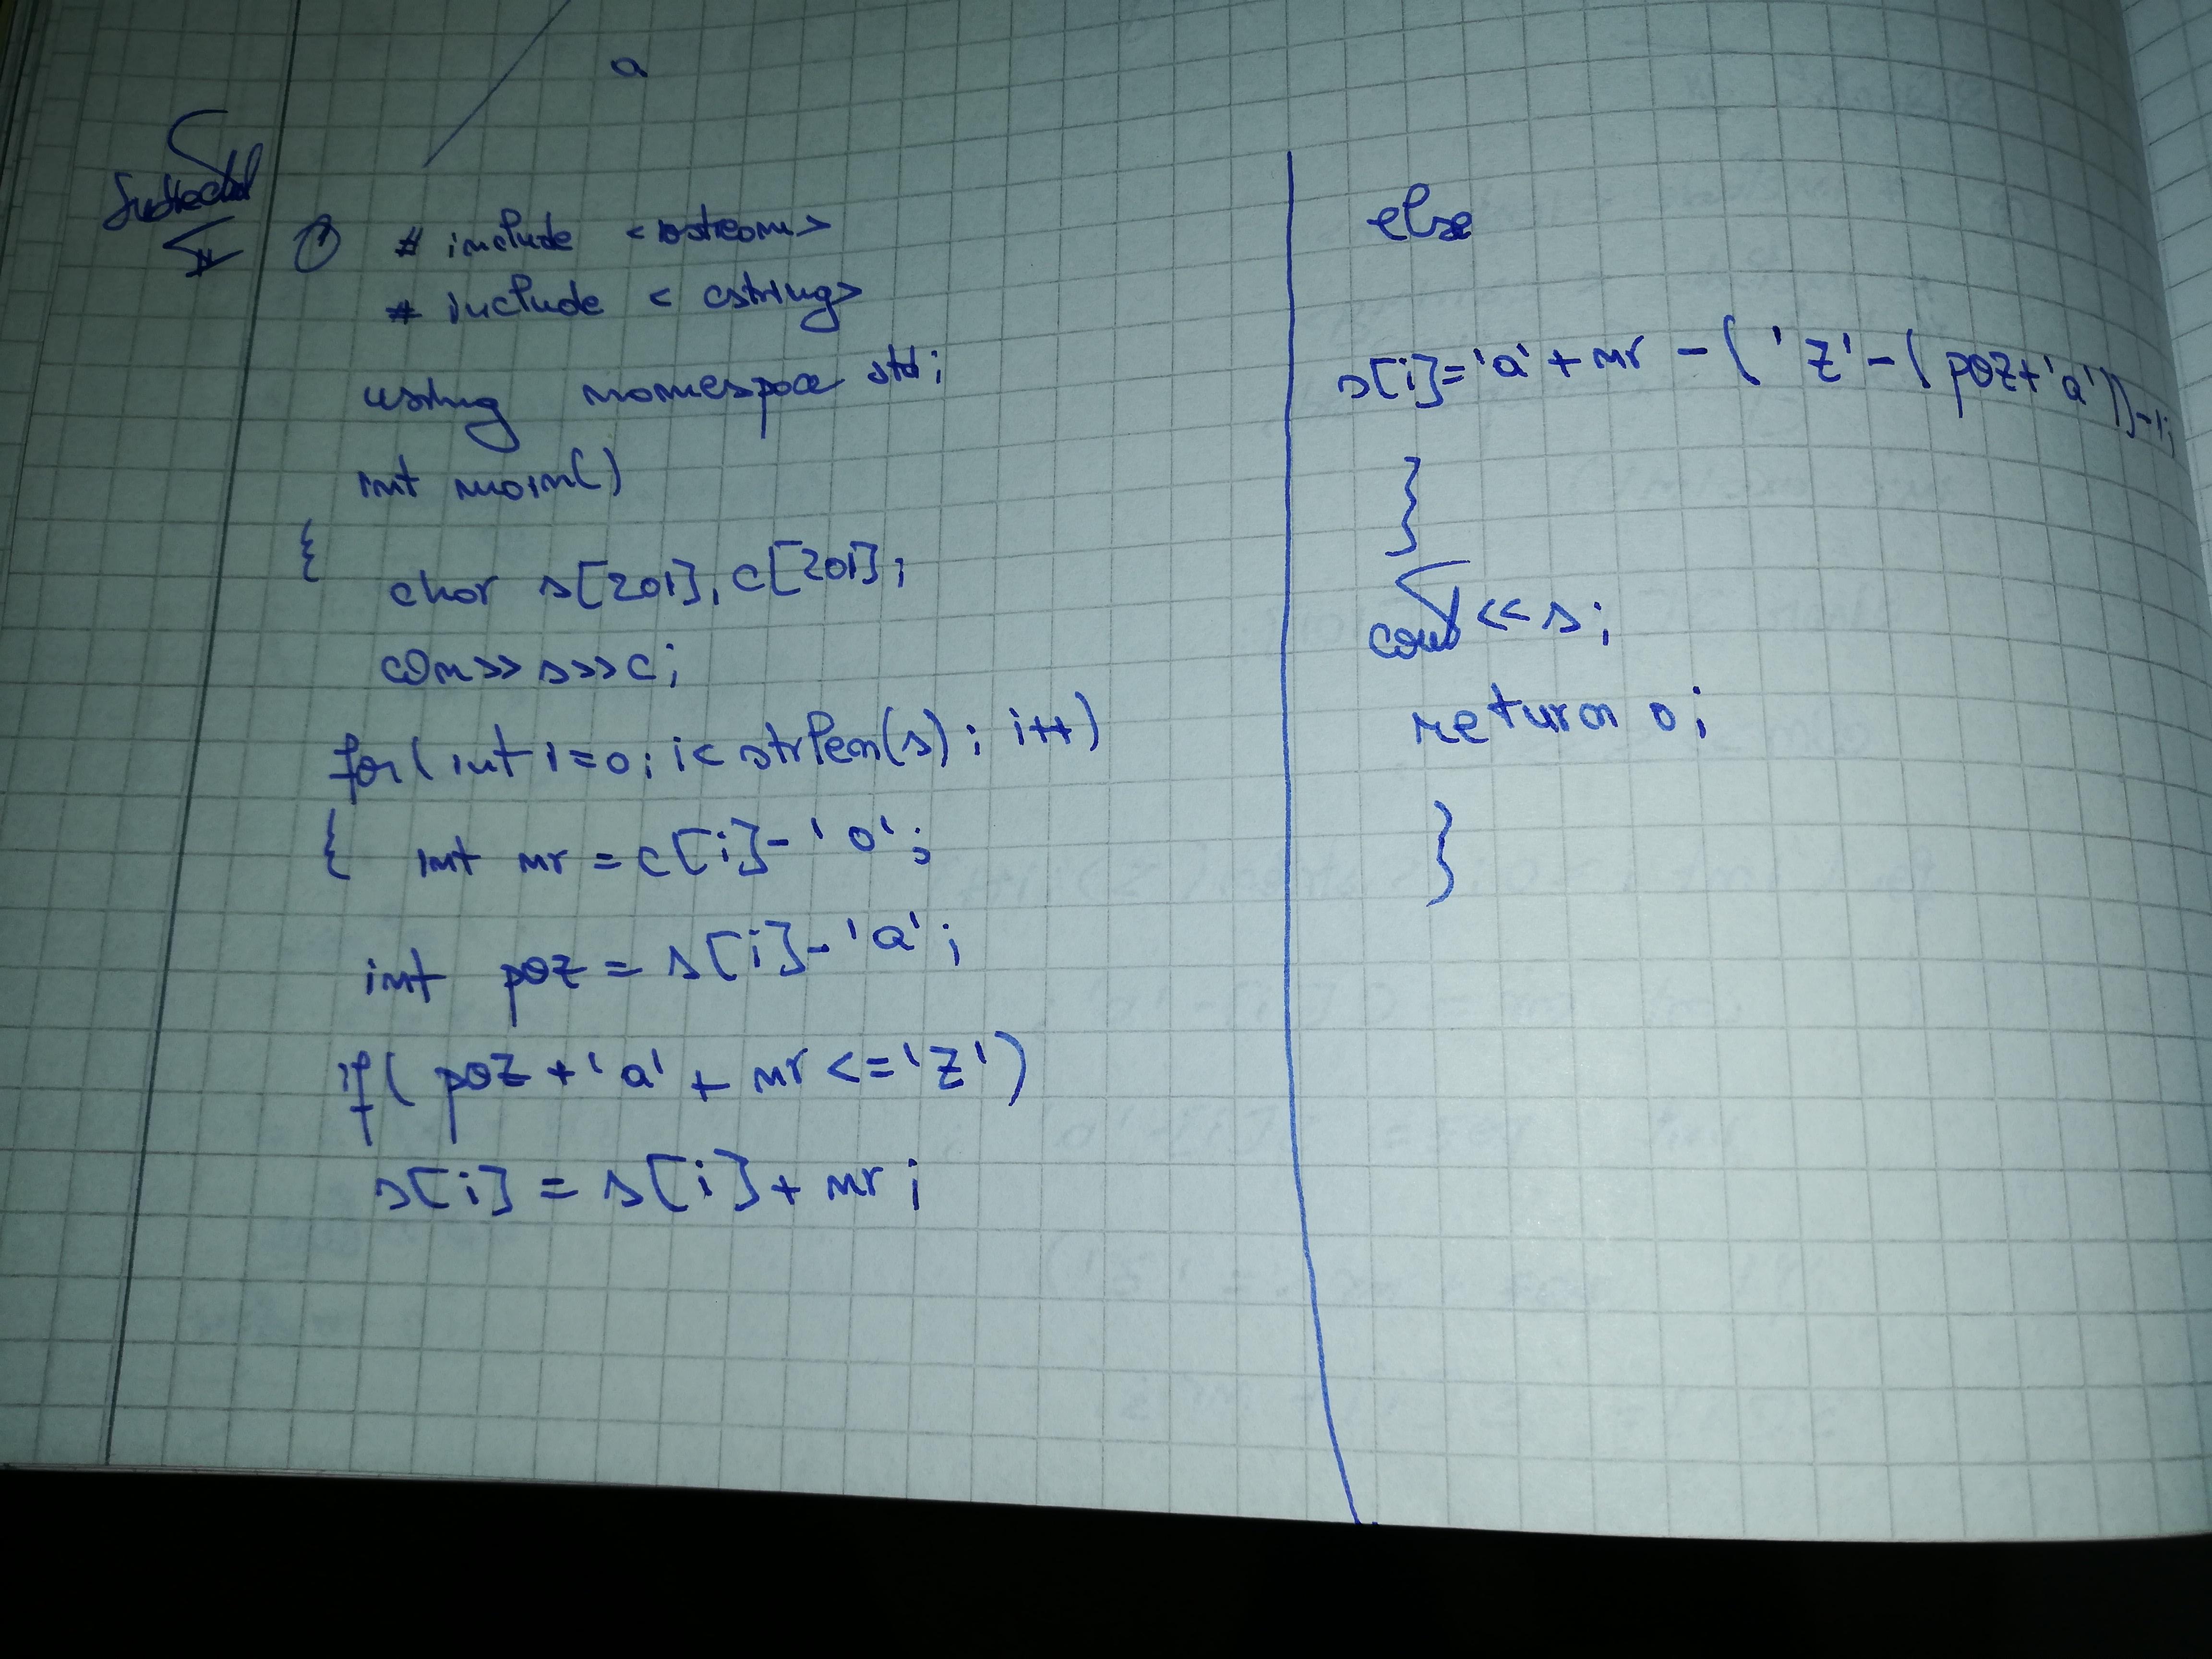 a
Subiectul
II ① # include <iostream>
# include < cstring>
using namespace std;
int main()
{
char s[201], c[201];
cin>> s>>c;
for( int i=0; i< strlen(s); i++)
{ int nr = c[i]-'0';
int poz = s[i]-'a';
if( poz +'a' + nr <='z')
s[i] = s[i]+ nr;
else
s[i]='a'+ nr -('z'-(poz+'a'))-1;
}
cout<<s;
return 0;
}